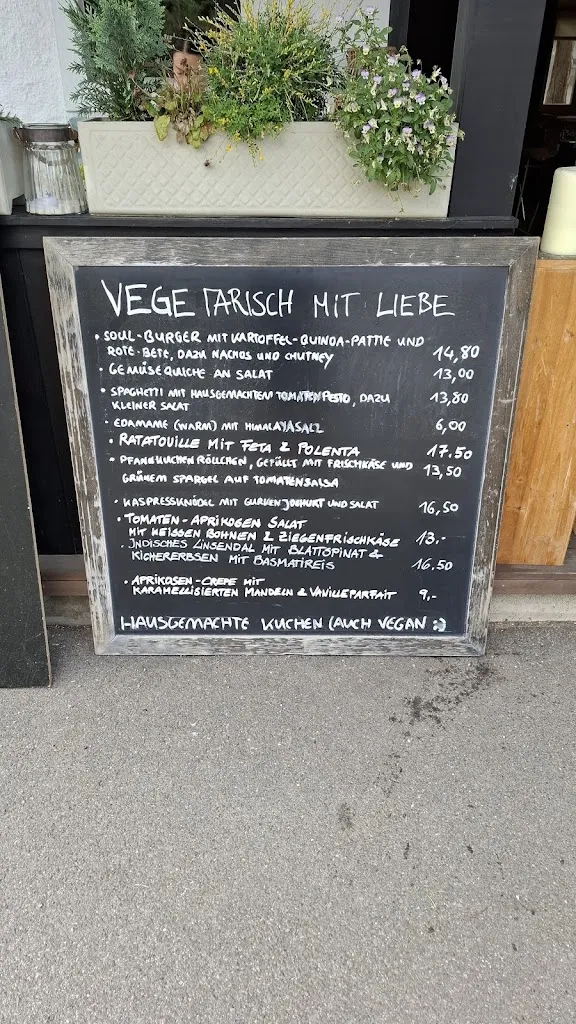 VEGETARISCH MIT LIEBE
• SOUL-BURGER MIT KARTOFFEL-QUINOA-PATTIE UND
ROTE-BETE, DAZU NACHOS UND CHUTNEY 14,80
• GEMÜSEQUICHE AN SALAT 13,00
• SPAGHETTI MIT HAUSGEMACHTEM TOMATENPESTO, DAZU 13,80
KLEINER SALAT
• EDAMAME (WARM) MIT HIMALAYASALZ 6,00
• RATATOUILLE MIT FETA & POLENTA 17.50
• PFANNKUCHENRÖLLCHEN, GEFÜLLT MIT FRISCHKÄSE UND 13,50
GRÜNEM SPARGEL AUF TOMATENSALSA
• KASPRESSKNÖDEL MIT GURKENJOGHURT UND SALAT 16,50
• TOMATEN-APRIKOSEN SALAT
MIT HEISSEN BOHNEN & ZIEGENFRISCHKÄSE 13.-
• INDISCHES LINSENDAL MIT BLATTSPINAT &
KICHERERBSEN MIT BASMATIREIS 16.50
• APRIKOSEN-CREPE MIT
KARAMELLISIERTEN MANDELN & VANILLEPARFAIT 9,-
HAUSGEMACHTE KUCHEN (AUCH VEGAN :)